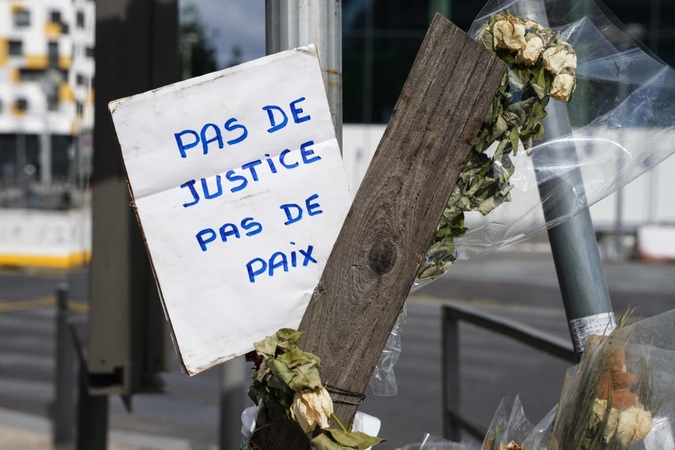 PAS DE
JUSTICE
PAS DE
PAIX